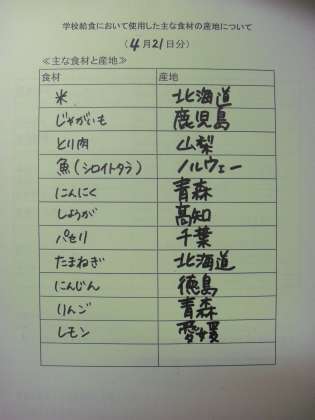 学校給食において使用した主な食材の産地について
(4月21日分)
≪主な食材と産地≫
食材 産地
米 北海道
じゃがいも 鹿児島
とり肉 山梨
魚(シロイトダラ) ノルウェー
にんにく 青森
しょうが 高知
パセリ 千葉
たまねぎ 北海道
にんじん 徳島
りんご 青森
レモン 愛媛